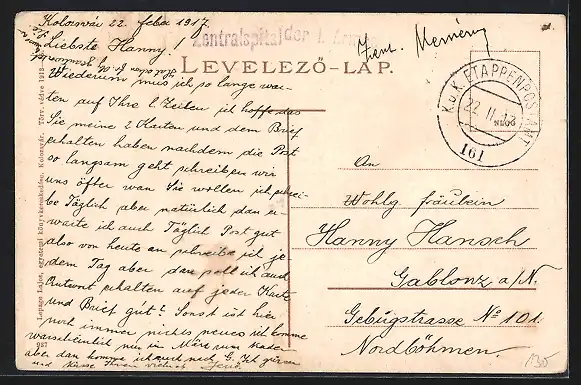 Kolozsvár 22. feber 1917.
Liebste Hanny!
Wiederum mus ich so lange war-
ten auf Ihre 2 Zeilen ich hoffe das
Sie meine 2 Karten und dem Brief
erhalten haben nachdem die Post
so langsam geht schreiben wir
uns öfter wan Sie wollen ich schrei-
be Täglich aber natürlich dan er-
warte ich auch Täglich Post gut
also von heute an schreibe ich je-
dem Tag aber dan soll ich auch
Antwort erhalten auf jeder Karte
und Brief gut? Sonst ist hier
noch immer nichts neues ich komme
warscheinlich nur im März zum Kader
aber dan komme ich auch nach G. Ich grüsse
und küsse Ihnen vielmals Jenő.
Zentralspital der 1. Armee
LEVELEZŐ-LAP.
K.u.K. ETAPPENPOSTAMT
22 II 17
161
An
Wohlg. fräulein
Hanny Hansch
Gablonz a/N.
Gebirgstrasse No 101.
Nordböhmen.
Lepage Lajos, egyetemi könyvkereskedése, Kolozsvár. Törv. védve 1913
987
130